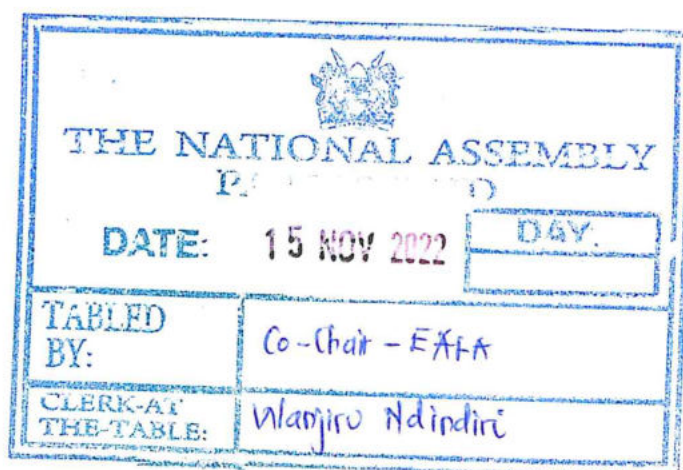 THE NATIONAL ASSEMBLY
DATE: 15 NOV 2022
DAY.
TABLED
BY:
Co-Chair - EALA
CLERK-AT
THE-TABLE:
Wanjiru Ndindiri